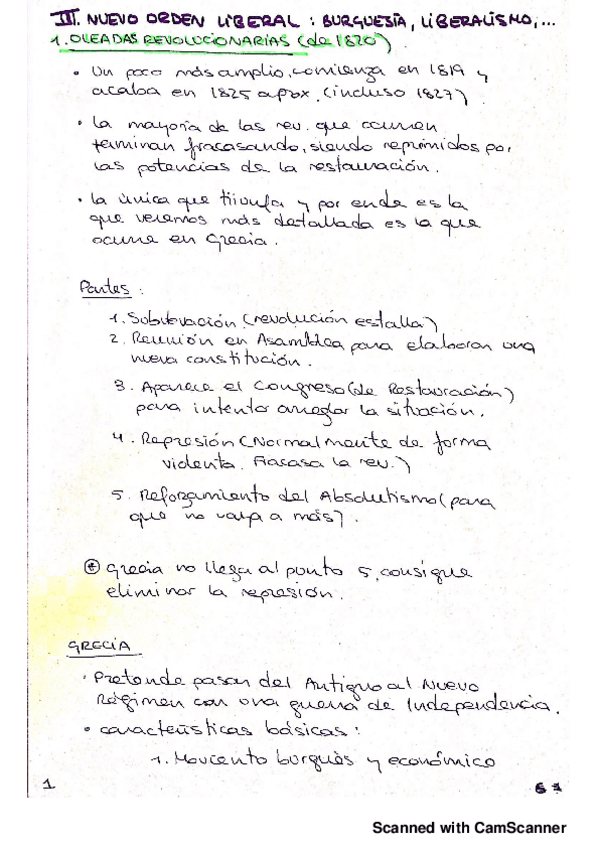 III. NUEVO ORDEN LIBERAL : BURGUESÍA, LIBERALISMO,...
1. OLEADAS REVOLUCIONARIAS (de 1820)
• Un poco más amplio, comienza en 1819 y
acaba en 1825 aprox. (incluso 1827)
• La mayoría de las rev. que ocurren
terminan fracasando, siendo reprimidos por
las potencias de la restauración.
• La única que triunfa y por ende es la
que veremos más detallada es la que
ocurre en Grecia.
Partes :
1. Sublevación (revolución estalla)
2. Reunión en Asamblea para elaborar una
nueva constitución.
3. Aparece el Congreso (de Restauración)
para intentar arreglar la situación.
4. Represión (Normalmente de forma
violenta. Fracasa la rev.)
5. Reforzamiento del Absolutismo (para
que no vaya a más).
* Grecia no llega al punto 5, consigue
eliminar la represión.
GRECIA
• Pretende pasar del Antiguo al Nuevo
Régimen con una guerra de Independencia.
• características básicas :
1. Moviento burgués y económico
1
Scanned with CamScanner